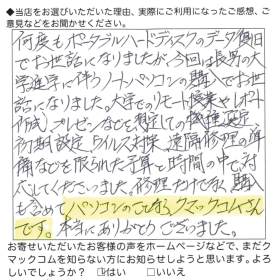 ◆当店をお選びいただいた理由、実際にご利用になったご感想、ご
意見などをお聞かせください。
何度もポータブルハードディスクのデータ復旧
でお世話になりましたが、今回は長男の大
学進学に伴うノートパソコンの購入でお世
話になりました。大学でのリモート授業やレポート
作成、プレゼンなどを想定しての機種選定、
初期設定、ウイルス対策、遠隔修理の準
備などを限られた予算と時間の中で、対
応してくださいました。修理だけでなく、購入
も含めて、パソコンのことなら、クマックコムさん
です。本当にありがとうございました。
お寄せいただいたお客様の声をホームページなどで、まだク
マックコムを知らない方にお知らせしようと思います。よろ
しいでしょうか? はい □いいえ